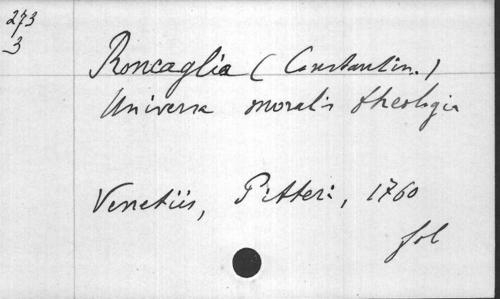 273
3
Roncaglia (Constantin.)
Universa moralis theologia
Venetiis, Pitteri, 1760
fol